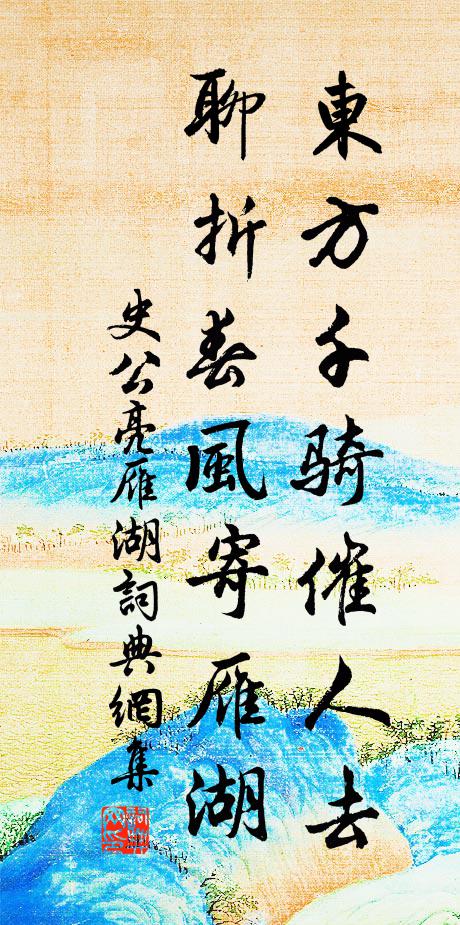 東方千騎催人去
聊折春風寄雁湖
史公亮雁湖詞典網集